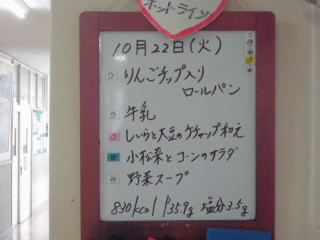 ホットライン
10月22日(火)
りんごチップ入り
ロールパン
牛乳
しいらと大豆のケチャップ和え
小松菜とコーンのサラダ
野菜スープ
830kcal 35.9g 塩分3.5g